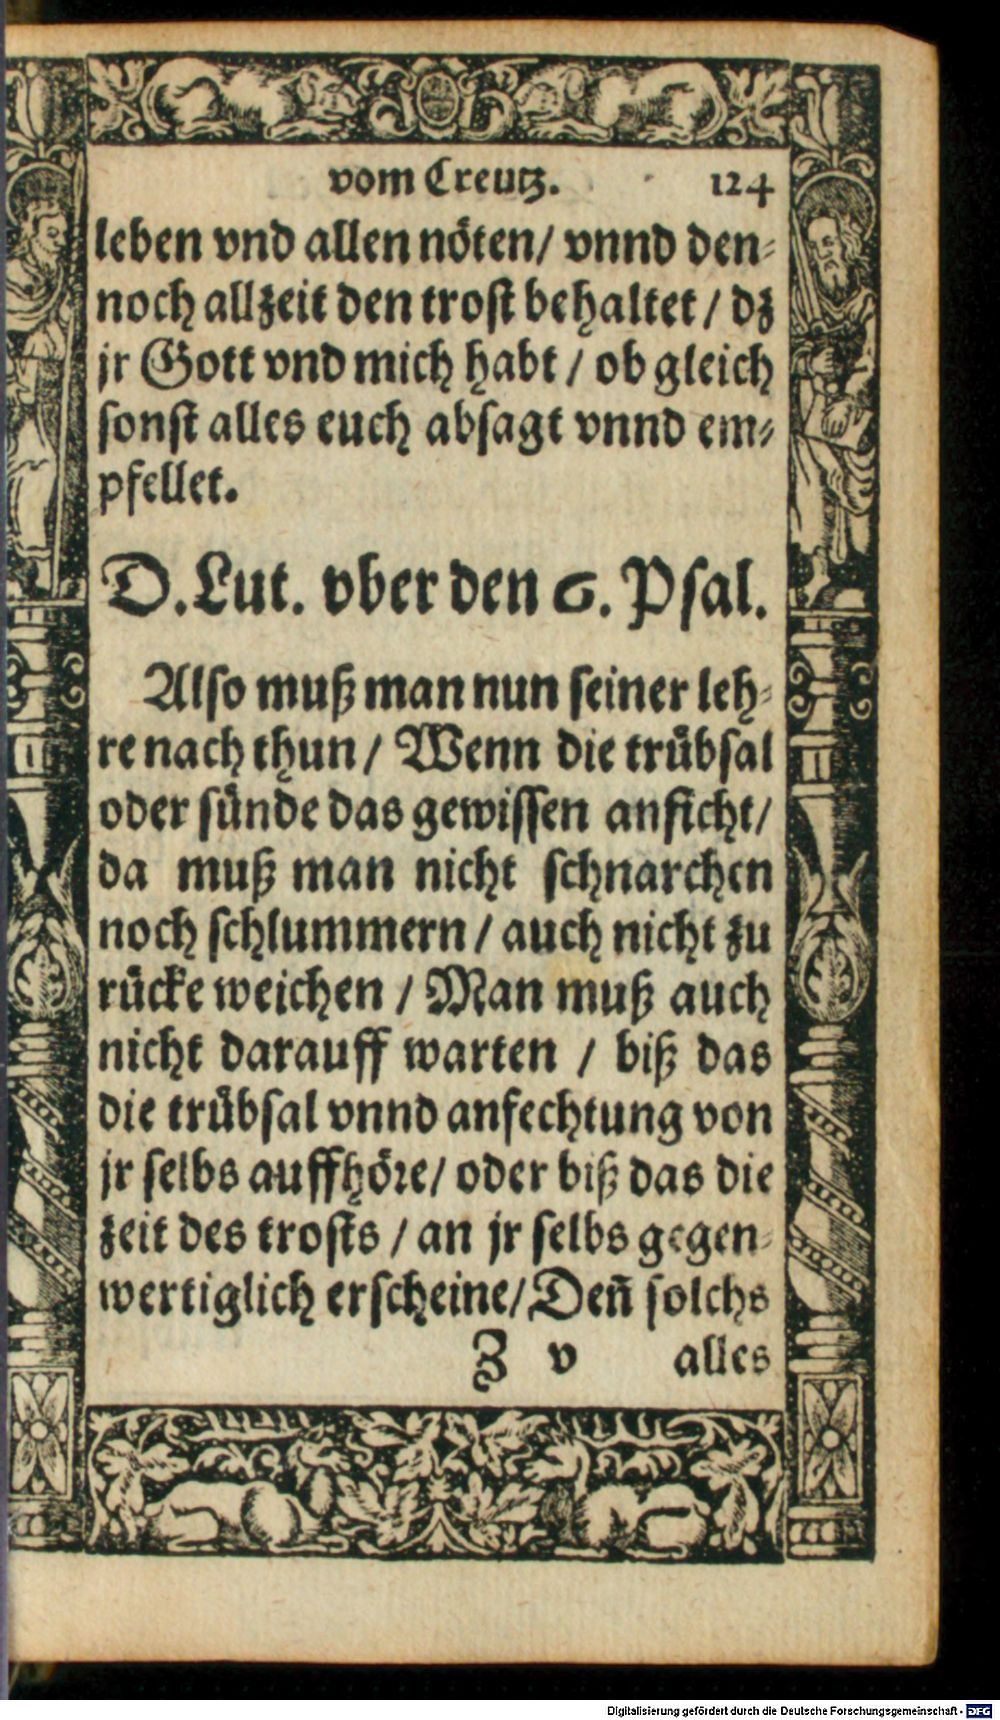 vom Creutz. 124
leben vnd allen nöten/ vnnd den⸗
noch allzeit den trost behaltet / dz
jr Gott vnd mich habt / ob gleich
sonst alles euch absagt vnnd em⸗
pfellet.
D. Lut. vber den 6. Psal.
Also muß man nun seiner leh⸗
re nach thun / Wenn die trübsal
oder sünde das gewissen anficht/
da muß man nicht schnarchen
noch schlummern / auch nicht zu
rücke weichen / Man muß auch
nicht darauff warten / biß das
die trübsal vnnd anfechtung von
jr selbs auffhöre/ oder biß das die
zeit des trosts / an jr selbs gegen⸗
wertiglich erscheine/ Deñ solchs
Z v alles
Digitalisierung gefördert durch die Deutsche Forschungsgemeinschaft - DFG